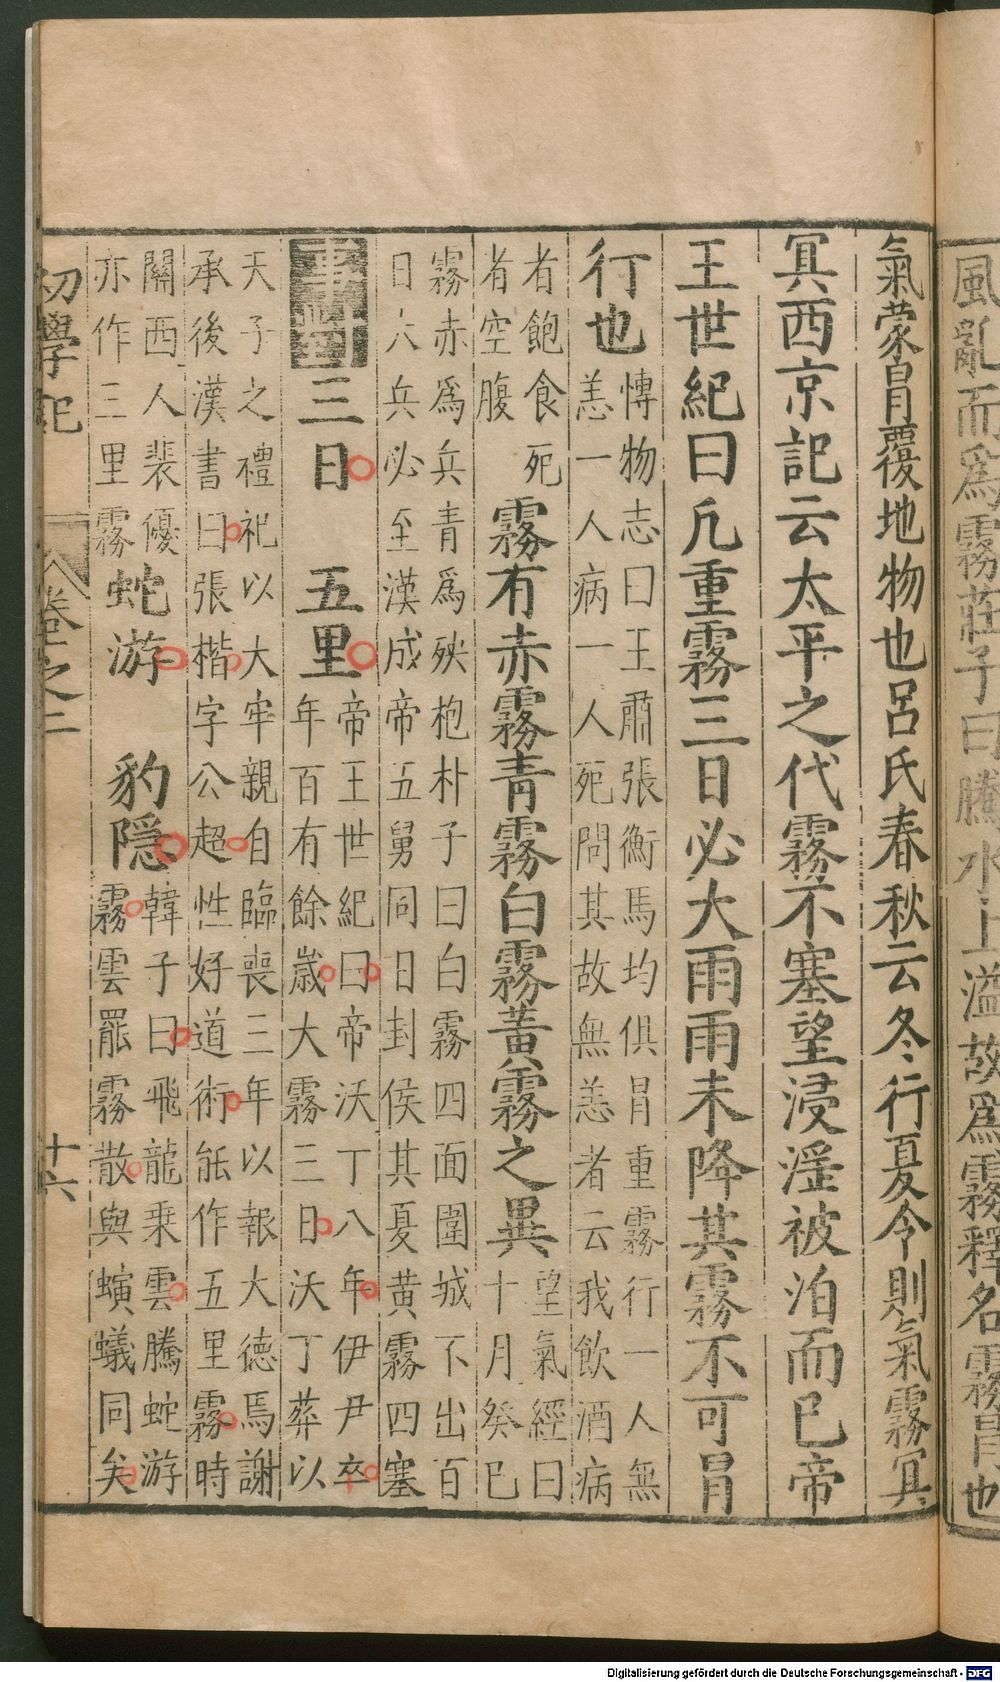 風亂而為霧莊子曰騰水上溢故為霧釋名霧冒也
氣蒙冒覆地物也呂氏春秋云冬行夏令則氣霧冥
冥西京記云太平之代霧不塞望浸淫被泊而已帝
王世紀曰凡重霧三日必大雨雨未降其霧不可冒
行也
慱物志曰王肅張衡馬均俱冒重霧行一人無
恙一人病一人死問其故無恙者云我飲酒病
者飽食死
者空腹
霧有赤霧青霧白霧黃霧之異
望氣經曰
十月癸巳
霧赤為兵青為殃抱朴子曰白霧四面圍城不出百
日大兵必至漢成帝五舅同日封侯其夏黄霧四塞
事對
三日 五里
帝王世紀曰帝沃丁八年伊尹卒
年百有餘歲大霧三日沃丁葬以
天子之禮祀以大牢親自臨喪三年以報大德焉謝
承後漢書曰張楷字公超性好道術能作五里霧時
關西人裴優
亦作三里霧
蛇游 豹隱
韓子曰飛龍乘雲騰蛇游
霧雲罷霧散與螾蟻同矣
初學記
卷之二
十六
Digitalisierung gefördert durch die Deutsche Forschungsgemeinschaft - DFG